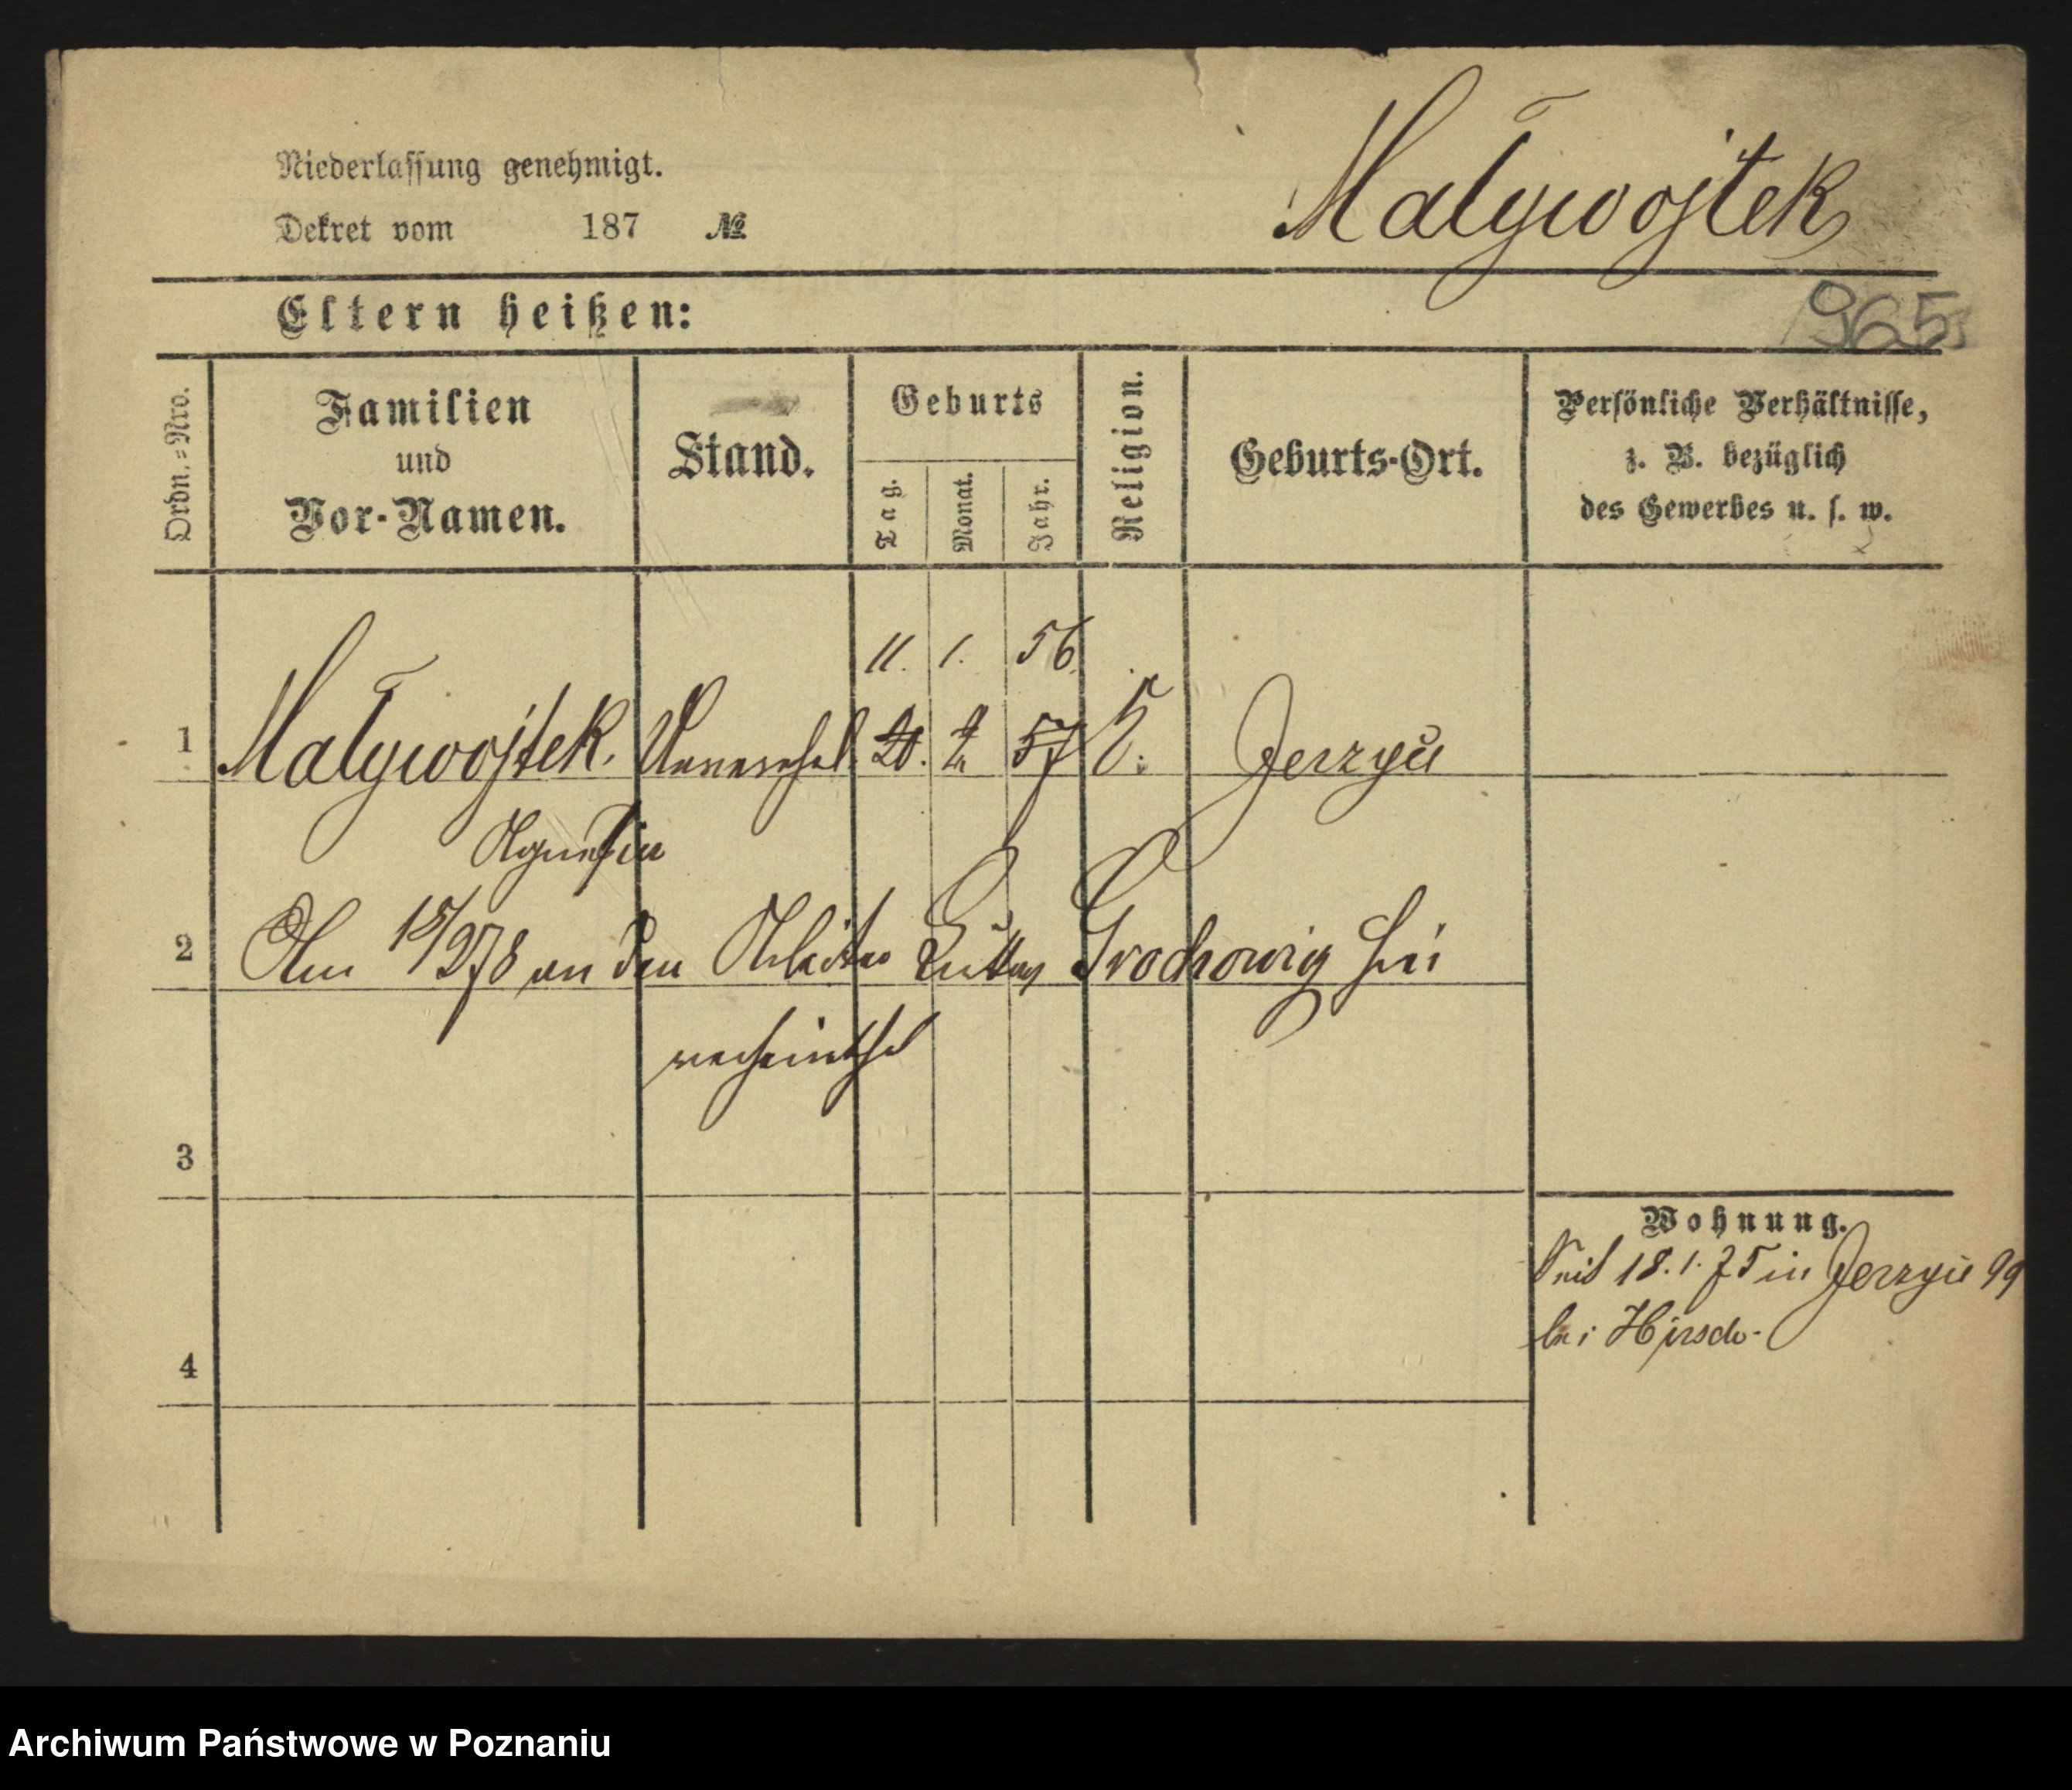 Niederlassung genehmigt.
Maływojtek
Dekret vom 187 №
Eltern heißen:
965
Ordn.=Nro.
Familien
und
Vor-Namen.
Stand.
Geburts
Tag.
Monat.
Jahr.
Religion.
Geburts-Ort.
Persönliche Verhältnisse,
z. B. bezüglich
des Gewerbes u. s. w.
11. 1. 56.
1 Maływojtek. Unverehel. 20. 2 57 k. Jerzyce
Agnesia
2 Am 15/2 78 an den Arbeiter Grochowig hier
verheirathet
3
Wohnung.
Seit 18.1.75 in Jerzyce 99
bei Hirsch.
4
Archiwum Państwowe w Poznaniu